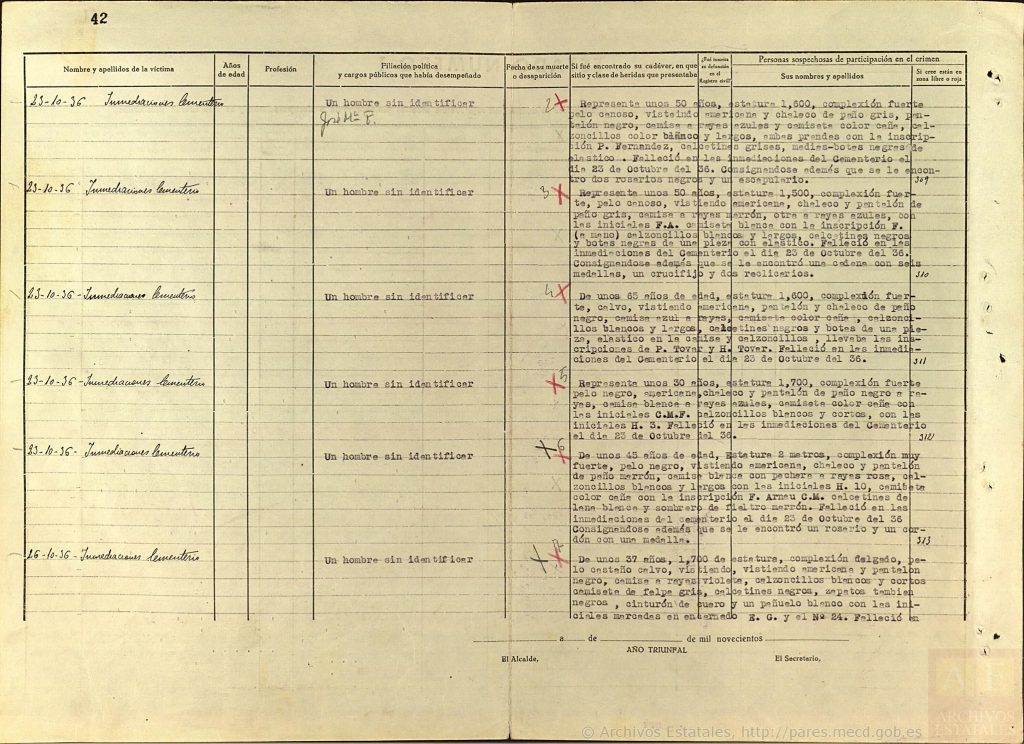 42
Nombre y apellidos de la víctima
Años
de edad
Profesión
Filiación política
y cargos públicos que había desempeñado
Fecha de su muerte
o desaparición
Si fué encontrado su cadáver, en que
sitio y clase de heridas que presentaba
¿Fué inscrita
su defunción
en el
Registro civil?
Personas sospechosas de participación en el crimen
Sus nombres y apellidos
Si cree están en
zona libre o roja
23-10-36 Inmediaciones Cementerio
Un hombre sin identificar
José Mª P.
2
Representa unos 50 años, estatura 1,600, complexión fuerte
pelo canoso, visteindo americana y chaleco de paño gris, pan-
talón negro, camisa a rayas azules y camiseta color caña, cal-
zoncillos color blanco y largos, ambas prendas con la inscrip-
ción P. Fernandez, calcetines grises, medias-botas negras de
elastico . Falleció en las inmediaciones del Cementerio el
dia 23 de Octubre del 36. Consignandose además que se le encon-
tro dos rosarios negros y un escapulario.
309
23-10-36 Inmediaciones Cementerio
Un hombre sin identificar
3
Representa unos 50 años, estatura 1,500, complexión fuer-
te, pelo canoso, vistiendo americana, chaleco y pantalón de
paño gris, camisa a rayas marrón, otra a rayas azules, con
las iniciales F.A. camiseta blanca con la inscripción F.
(a mano) calzoncillos blancos y largos, calcetines negros
y botas negras de una pieza con elastico. Falleció en las
inmediaciones del Cementerio el dia 23 de Octubre del 36.
Consignandose además que se le encontró una cadena con seis
medallas, un crucifijo y dos reclicarios.
310
23-10-36 - Inmediaciones Cementerio
Un hombre sin identificar
4
De unos 65 años de edad, estatura 1,600, complexión fuer-
te, calvo, vistiendo americana, pantalón y chaleco de paño
negro, camisa azul a rayas, camiseta color caña , calzonci-
llos blancos y largos, calcetines negros y botas de una pie-
za, elastico en la camisa y calzoncillos , llevaba las ins-
cripciones de P. Tovar y H. Tovar. Falleció en las inmedia-
ciones del Cementerio el dia 23 de Octubre del 36.
311
23-10-36 - Inmediaciones Cementerio
Un hombre sin identificar
5
Representa unos 30 años, estatura 1,700, complexión fuerte
pelo negro, americana,chaleco y pantalón de paño negro a ra-
yas, camisa blanca a rayas azules, camiseta color caña con
las iniciales C.M.F. calzoncillos blancos y cortos, con las
iniciales H. 3. Falleció en las inmediaciones del Cementerio
el dia 23 de Octubre del 36.
312
23-10-36 - Inmediaciones Cementerio
Un hombre sin identificar
6
De unos 45 años de edad, Estatura 2 metros, complexión muy
fuerte, pelo negro, vistiendo americana, chaleco y pantalón
de paño marrón, camisa blanca con pechera a rayas rosa, cal-
zoncillos blancos y largos con las iniciales H. 10, camiseta
color caña con la inscripción F. Arnau C.M. calcetines de
lana blanca y sombrero de fieltro marrón. Falleció en las
inmediaciones del cementerio el dia 23 de Octubre del 36
Consignandose además que se le encontró un rosario y un cor-
dón con una medalla.
313
26-10-36 - Inmediaciones Cementerio
Un hombre sin identificar
7
De unos 37 años, 1,700 de estatura, complexión delgado, pe-
lo castaño calvo, vistiendo, vistiendo americana y pantalon
negro, camisa a rayas violeta, calzoncillos blancos y cortos
camiseta de felpa gris, calcetines negros, zapatos tambien
negros , cinturón de cuero y un pañuelo blanco con las ini-
ciales marcadas en encarnado E. G. y el Nº 24. Falleció en
a de de mil novecientos
AÑO TRIUNFAL
El Alcalde, El Secretario,
ARCHIVOS
ESTATALES
© Archivos Estatales, http://pares.mecd.gob.es